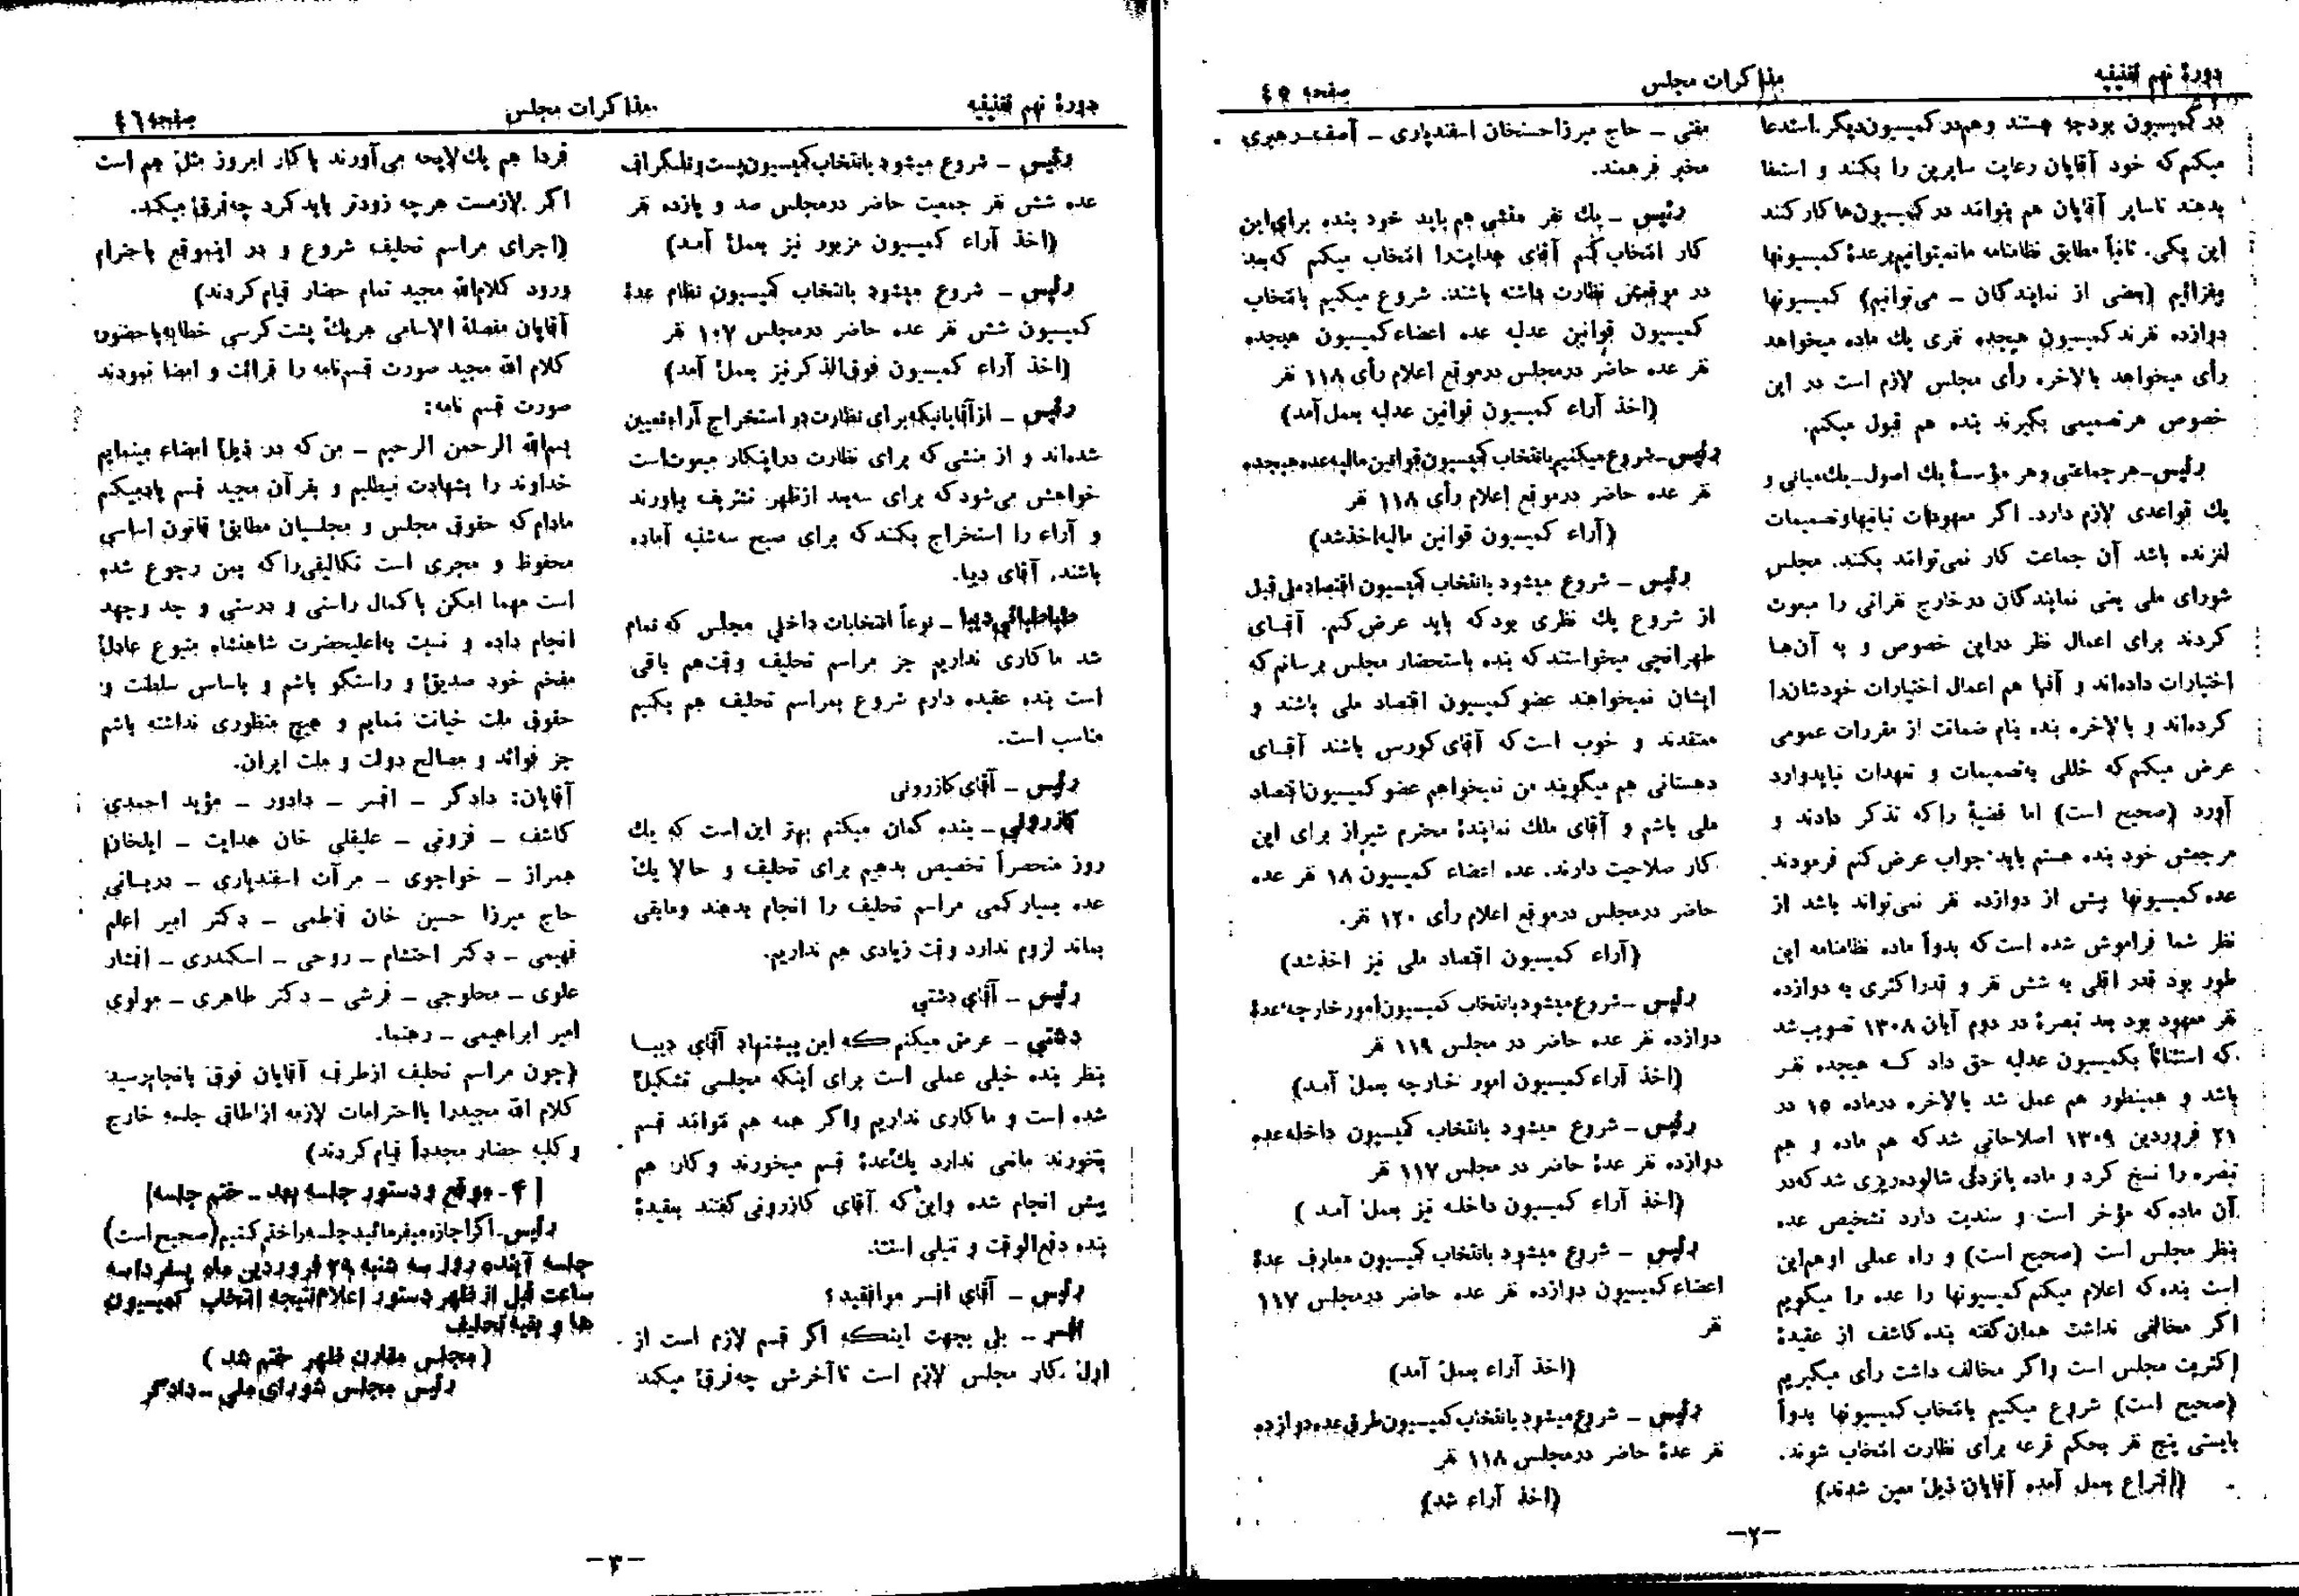 دورهٔ نهم تقنینیه
مذاکرات مجلس
صفحه ٤٥
در کمیسیون بودجه هستند و هم در کمیسیون دیگر. استدعا
میکنم که خود آقایان رعایت سایرین را بکنند و استعفا
بدهند تا سایر آقایان هم بتوانند در کمیسیون‌ها کار کنند
این یکی. ثانیاً مطابق نظامنامه ما نمیتوانیم بر عدهٔ کمیسیونها
بیفزائیم (بعضی از نمایندگان – می‌توانیم) کمیسیونها
دوازده نفرند کمیسیون هیجده نفری یک ماده میخواهد
رأی میخواهد بالاخره رأی مجلس لازم است در این
خصوص هر تصمیمی بگیرند بنده هم قبول میکنم.
رئیس – هر جماعتی و هر مؤسسهٔ یک اصول – یک مبانی و
یک قواعدی لازم دارد. اگر معهودات تبانیها و تصمیمات
لغزنده باشد آن جماعت کار نمی‌تواند بکنند. مجلس
شورای ملی یعنی نمایندگان در خارج نفراتی را مبعوث
کردند برای اعمال نظر در این خصوص و به آن‌ها
اختیارات داده‌اند و آنها هم اعمال اختیارات خودشان را
کرده‌اند و بالاخره بنده بنام ضمانت از مقررات عمومی
عرض میکنم که خللی به تصمیمات و تعهدات نباید وارد
آورد (صحیح است) اما قضیهٔ را که تذکر دادند و
مرجعش خود بنده هستم باید جواب عرض کنم فرمودند
عده کمیسیونها بیش از دوازده نفر نمی‌تواند باشد از
نظر شما فراموش شده است که بدواً ماده نظامنامه این
طور بود قدر اقلی به شش نفر و قدر اکثری به دوازده
نفر معهود بود بعد تبصرهٔ در دوم آبان ۱۳۰۸ تصویب شد
که استثنائاً بکمیسیون عدلیه حق داد که هیجده نفر
باشد و همینطور هم عمل شد بالاخره در ماده ۱۵ در
۲۱ فروردین ۱۳۰۹ اصلاحاتی شد که هم ماده و هم
تبصره را نسخ کرد و ماده پانزدهی شالوده‌ریزی شد که در
آن ماده که مؤخر است و سندیت دارد تشخیص عده
بنظر مجلس است (صحیح است) و راه عملی او هم این
است بنده که اعلام میکنم کمیسیونها را عده را میگویم
اگر مخالفی نداشت همان گفته بنده کاشف از عقیدهٔ
اکثریت مجلس است و اگر مخالف داشت رأی میگیریم
(صحیح است) شروع میکنیم بانتخاب کمیسیونها بدواً
بایستی پنج نفر بحکم قرعه برای نظارت انتخاب شوند.
(اقتراع بعمل آمده آقایان ذیل معین شدند)
مفتی – حاج میرزا حسنخان اسفندیاری – آصف – رهبری
مخبر فرهمند.
رئیس – یک نفر منشی هم باید خود بنده برای این
کار انتخاب کنم آقای هدایت را انتخاب میکنم که بعد
در موقعش نظارت داشته باشند. شروع میکنیم بانتخاب
کمیسیون قوانین عدلیه عده اعضاء کمیسیون هیجده
نفر عده حاضر در مجلس در موقع اعلام رأی ۱۱۸ نفر
(اخذ آراء کمیسیون قوانین عدلیه بعمل آمد)
رئیس – شروع میکنیم بانتخاب کمیسیون قوانین مالیه عده هیجده
نفر عده حاضر در موقع اعلام رأی ۱۱۸ نفر
(آراء کمیسیون قوانین مالیه اخذ شد)
رئیس – شروع میشود بانتخاب کمیسیون اقتصاد ملی قبل
از شروع یک نظری بود که باید عرض کنم. آقای
طهرانچی میخواستند که بنده باستحضار مجلس برسانم که
ایشان نمیخواهند عضو کمیسیون اقتصاد ملی باشند و
معتقدند و خوب است که آقای کورس باشند آقای
دهستانی هم میگویند من نمیخواهم عضو کمیسیون اقتصاد
ملی باشم و آقای ملک نمایندهٔ محترم شیراز برای این
کار صلاحیت دارند. عده اعضاء کمیسیون ۱۸ نفر عده
حاضر در مجلس در موقع اعلام رأی ۱۲۰ نفر.
(آراء کمیسیون اقتصاد ملی نیز اخذ شد)
رئیس – شروع میشود بانتخاب کمیسیون امور خارجه عدهٔ
دوازده نفر عده حاضر در مجلس ۱۱۹ نفر
(اخذ آراء کمیسیون امور خارجه بعمل آمد)
رئیس – شروع میشود بانتخاب کمیسیون داخله عده
دوازده نفر عدهٔ حاضر در مجلس ۱۱۷ نفر
(اخذ آراء کمیسیون داخله نیز بعمل آمد)
رئیس – شروع میشود بانتخاب کمیسیون معارف عدهٔ
اعضاء کمیسیون دوازده نفر عده حاضر در مجلس ۱۱۷
نفر
(اخذ آراء بعمل آمد)
رئیس – شروع میشود بانتخاب کمیسیون طرق عده دوازده
نفر عدهٔ حاضر در مجلس ۱۱۸ نفر
(اخذ آراء شد)
–۲–
دورهٔ نهم تقنینیه
مذاکرات مجلس
صفحه ٤٦
رئیس – شروع میشود بانتخاب کمیسیون پست و تلگراف
عده شش نفر جمعیت حاضر در مجلس صد و یازده نفر
(اخذ آراء کمیسیون مزبور نیز بعمل آمد)
رئیس – شروع میشود بانتخاب کمیسیون نظام عدهٔ
کمیسیون شش نفر عده حاضر در مجلس ۱۰۷ نفر
(اخذ آراء کمیسیون فوق‌الذکر نیز بعمل آمد)
رئیس – از آقایانیکه برای نظارت در استخراج آراء تعیین
شده‌اند و از منشی که برای نظارت در اینکار مبعوث است
خواهش می‌شود که برای سه بعد از ظهر تشریف بیاورند
و آراء را استخراج بکنند که برای صبح سه‌شنبه آماده
باشند. آقای دیبا.
طباطبائی دیبا – نوعاً انتخابات داخلی مجلس که تمام
شد ما کاری نداریم جز مراسم تحلیف وقت هم باقی
است بنده عقیده دارم شروع بمراسم تحلیف هم بکنیم
مناسب است.
رئیس – آقای کازرونی
کازرونی – بنده گمان میکنم بهتر این است که یک
روز منحصراً تخصیص بدهیم برای تحلیف و حالا یک
عده بسیار کمی مراسم تحلیف را انجام بدهند و مابقی
بماند لزوم ندارد وقت زیادی هم نداریم.
رئیس – آقای دشتی
دشتی – عرض میکنم که این پیشنهاد آقای دیبا
بنظر بنده خیلی عملی است برای اینکه مجلسی تشکیل
شده است و ما کاری نداریم و اگر همه هم نتوانند قسم
بخورند مانعی ندارد یک عدهٔ قسم میخورند و کار هم
پیش انجام شده و این که آقای کازرونی گفتند بعقیدهٔ
بنده دفع‌الوقت و تنبلی است.
رئیس – آقای افسر موافقید؟
افسر – بلی بجهت اینکه اگر قسم لازم است از
اول کار مجلس لازم است تا آخرش چه فرق میکند
فردا هم یک لایحه می‌آورند با کار امروز مثل هم است
اگر لازمست هرچه زودتر باید کرد چه فرق میکند.
(اجرای مراسم تحلیف شروع و در اینموقع باحترام
ورود کلام‌الله مجید تمام حضار قیام کردند)
آقایان مفصلة الاسامی هر یک پشت کرسی خطابه با حضور
کلام الله مجید صورت قسم‌نامه را قرائت و امضا نمودند
صورت قسم نامه:
بسم‌الله الرحمن الرحیم – من که در ذیل امضاء مینمایم
خداوند را بشهادت میطلبم و بقرآن مجید قسم یاد میکنم
مادام که حقوق مجلس و مجلسیان مطابق قانون اساسی
محفوظ و مجری است تکالیفی را که بمن رجوع شده
است مهما امکن با کمال راستی و درستی و جد و جهد
انجام داده و نسبت به اعلیحضرت شاهنشاه متبوع عادل
مفخم خود صدیق و راستگو باشم و باساس سلطنت و
حقوق ملت خیانت ننمایم و هیچ منظوری نداشته باشم
جز فوائد و مصالح دولت و ملت ایران.
آقایان: دادگر – افسر – دادور – مؤید احمدی
کاشف – فزونی – علیقلی خان هدایت – ایلخان
همراز – خواجوی – مرآت اسفندیاری – دربانی
حاج میرزا حسین خان فاطمی – دکتر امیر اعلم
فهیمی – دکتر احتشام – روحی – اسکندری – افشار
علوی – محلوجی – فرشی – دکتر طاهری – مولوی
امیر ابراهیمی – رهنما.
(چون مراسم تحلیف از طرف آقایان فوق بانجام رسید
کلام الله مجید را با احترامات لازمه از اطاق جلسه خارج
و کلیه حضار مجدداً قیام کردند)
[۴- موقع و دستور جلسه بعد – ختم جلسه]
رئیس – اگر اجازه میفرمائید جلسه را ختم کنیم (صحیح است)
جلسه آینده روز سه شنبه ۲۹ فروردین ماه پسفردا سه
ساعت قبل از ظهر دستور اعلام نتیجه انتخاب کمیسیون
ها و بقیه تحلیف
(مجلس مقارن ظهر ختم شد)
رئیس مجلس شورای ملی – دادگر
–۳–